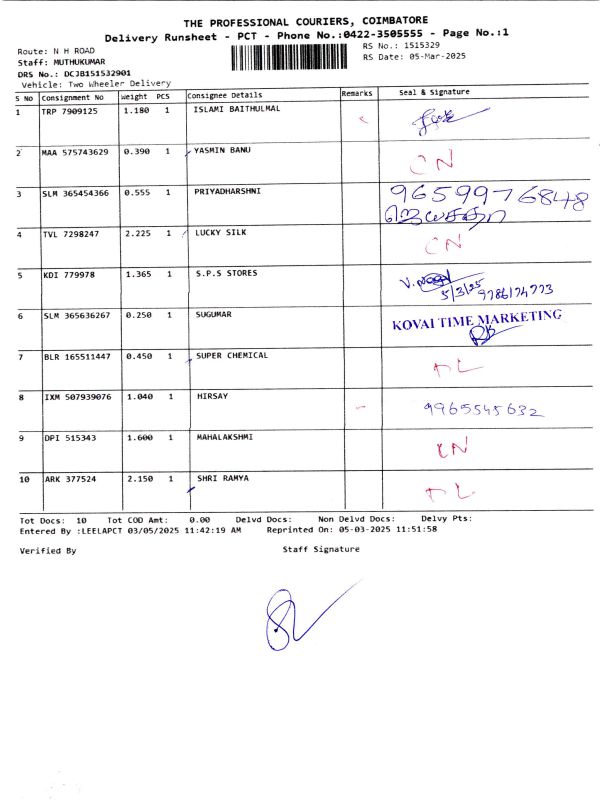 THE PROFESSIONAL COURIERS, COIMBATORE
Delivery Runsheet - PCT - Phone No.:0422-3505555 - Page No.:1
Route: N H ROAD RS No.: 1515329
Staff: MUTHUKUMAR RS Date: 05-Mar-2025
DRS No.: DCJB151532901
Vehicle: Two Wheeler Delivery
S No Consignment No Weight PCS Consignee Details Remarks Seal & Signature
1 TRP 7909125 1.180 1 ISLAMI BAITHULMAL
2 MAA 575743629 0.390 1 YASMIN BANU CN
3 SLM 365454366 0.555 1 PRIYADHARSHNI 9659976848
4 TVL 7298247 2.225 1 LUCKY SILK CN
5 KDI 779978 1.365 1 S.P.S STORES
5/3/25 9786174773
6 SLM 365636267 0.250 1 SUGUMAR KOVAI TIME MARKETING
7 BLR 165511447 0.450 1 SUPER CHEMICAL DL
8 IXM 507939076 1.040 1 HIRSAY 9965545632
9 DPI 515343 1.600 1 MAHALAKSHMI CN
10 ARK 377524 2.150 1 SHRI RAMYA DL
Tot Docs: 10 Tot COD Amt: 0.00 Delvd Docs: Non Delvd Docs: Delvy Pts:
Entered By :LEELAPCT 03/05/2025 11:42:19 AM Reprinted On: 05-03-2025 11:51:58
Verified By Staff Signature